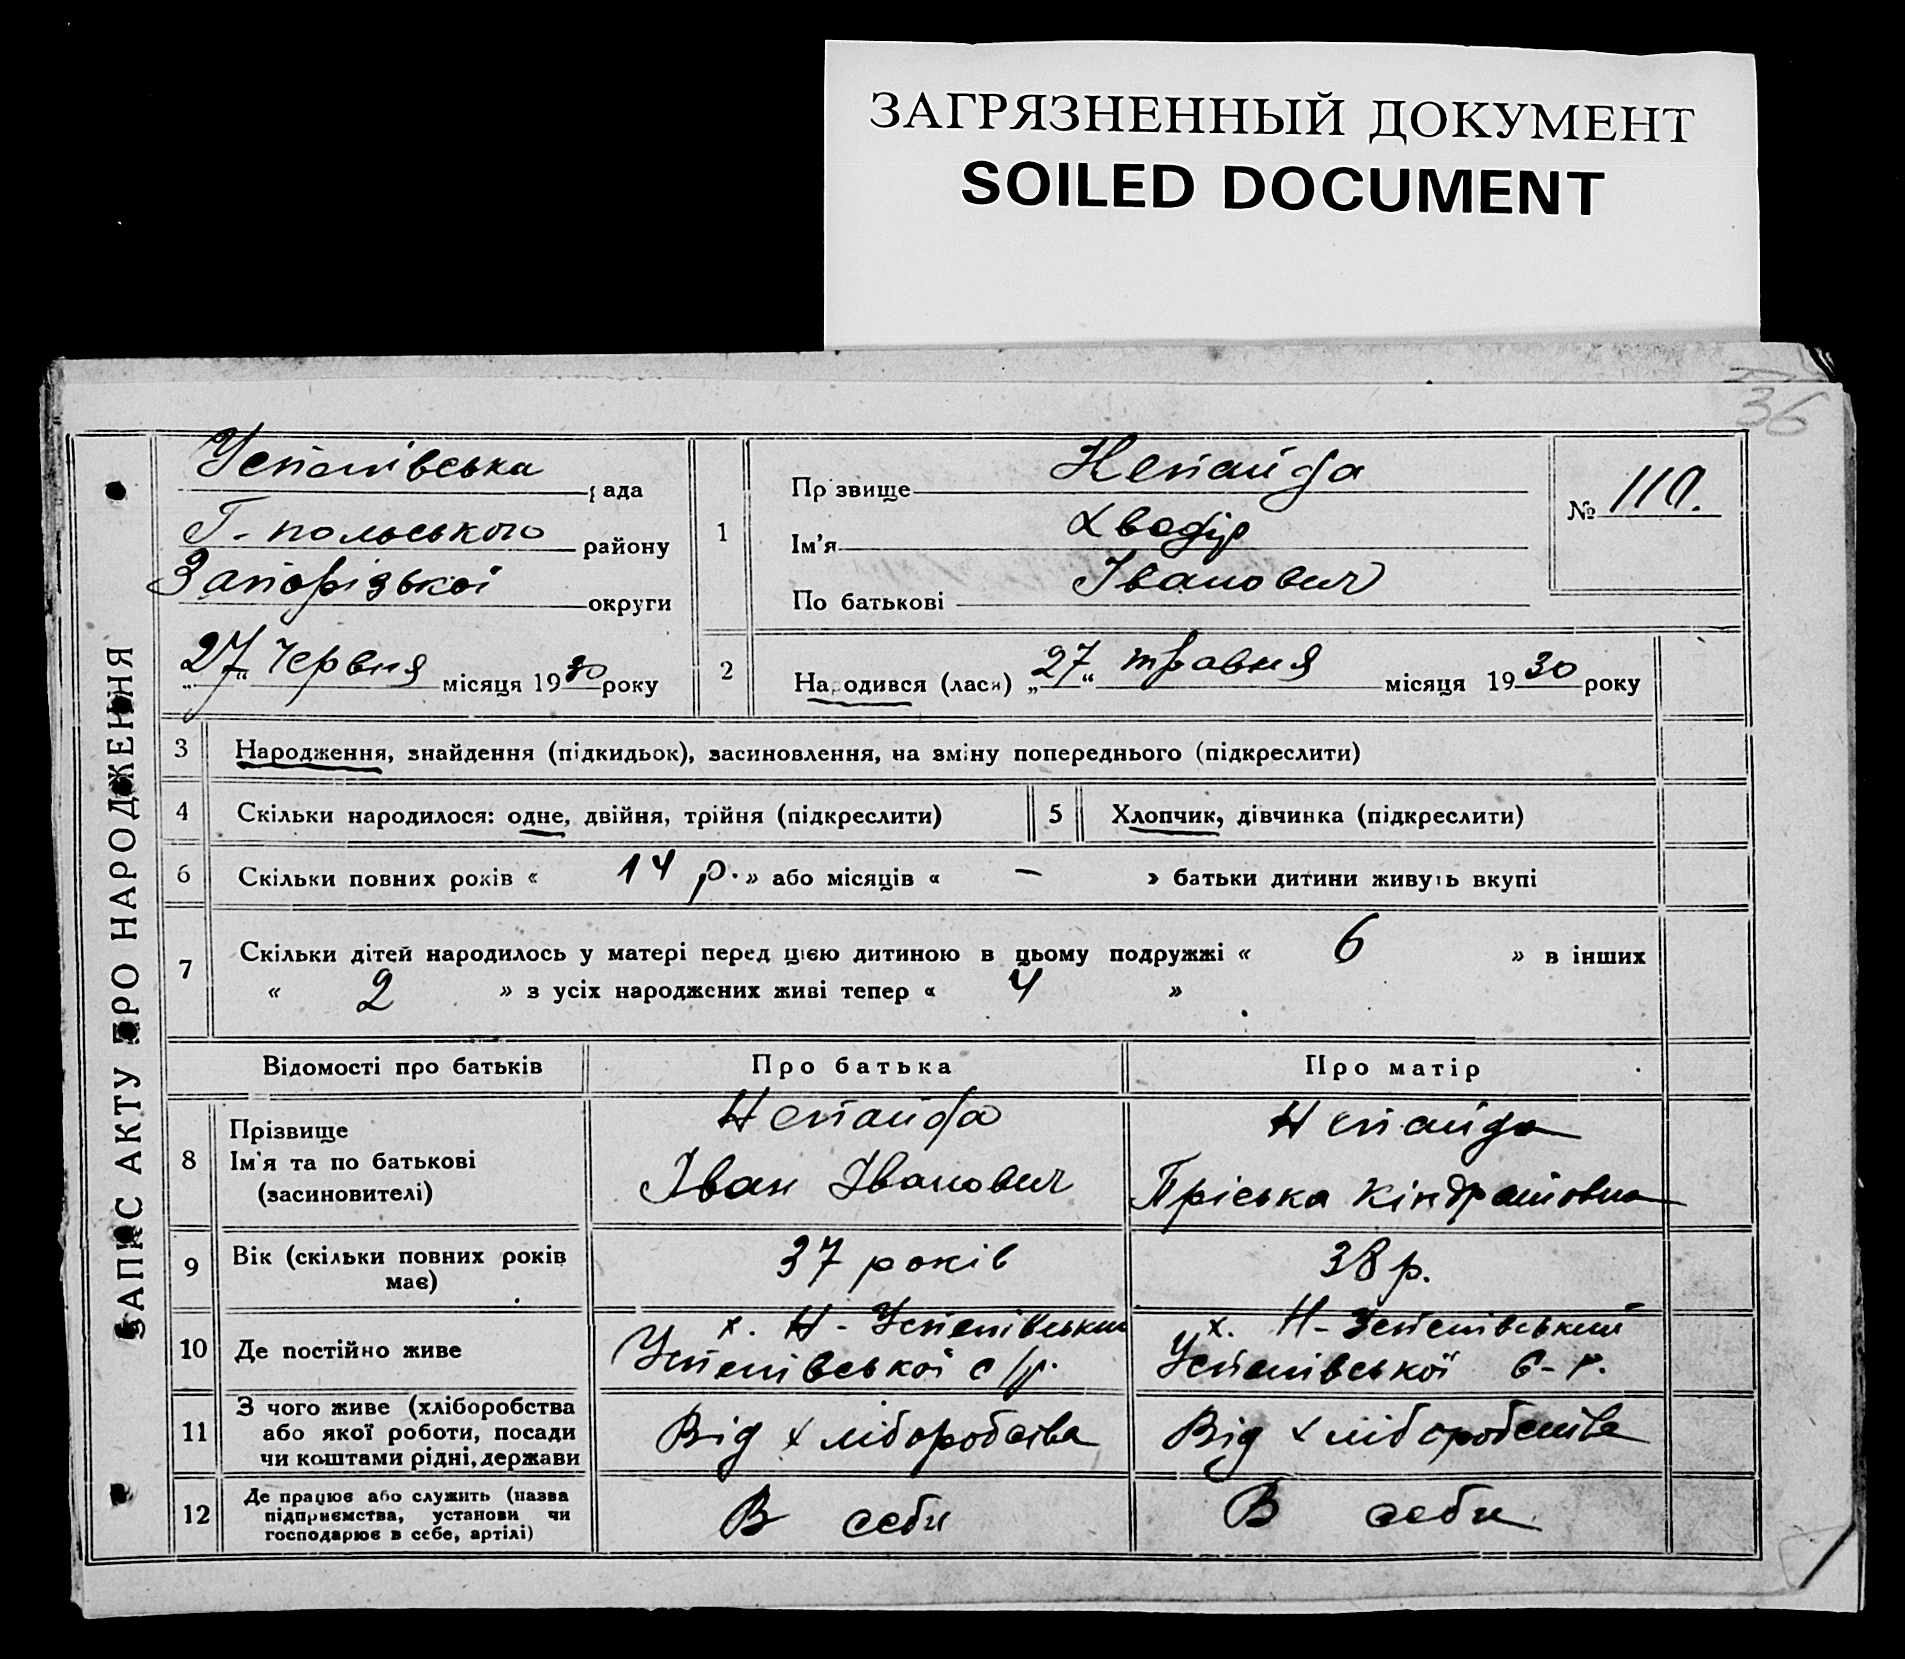 ЗАГРЯЗНЕННЫЙ ДОКУМЕНТ
SOILED DOCUMENT
36
ЗАПИС АКТУ ПРО НАРОДЖЕННЯ
Успенівська рада
Г-польського району
Запорізької округи
„27“ червня місяця 1930 року
1 Прізвище Непайда
Ім'я Хведір
По батькові Іванович
№ 110.
2 Народився (лася) „27“ травня місяця 1930 року
3 Народження, знайдення (підкидьок), засиновлення, на зміну попереднього (підкреслити)
4 Скільки народилося: одне, двійня, трійня (підкреслити) 5 Хлопчик, дівчинка (підкреслити)
6 Скільки повних років « 14 р. » або місяців « — » батьки дитини живуть вкупі
7 Скільки дітей народилось у матері перед цією дитиною в цьому подружжі « 6 » в інших
« 2 » з усіх народжених живі тепер « 4 »
Відомості про батьків Про батька Про матір
8 Прізвище Непайда Непайда
Ім'я та по батькові Іван Іванович Пріська Кіндратовна
(засиновителі)
9 Вік (скільки повних років має) 37 років 38 р.
10 Де постійно живе х. Н-Успенівський Успенівської с/р. х. Н-Успенівський Успенівської с-р.
11 З чого живе (хліборобства Від хліборобства Від хліборобства
або якої роботи, посади
чи коштами рідні, держави
12 Де працює або служить (назва В себи В себи
підприємства, установи чи
господарює в себе, артілі)